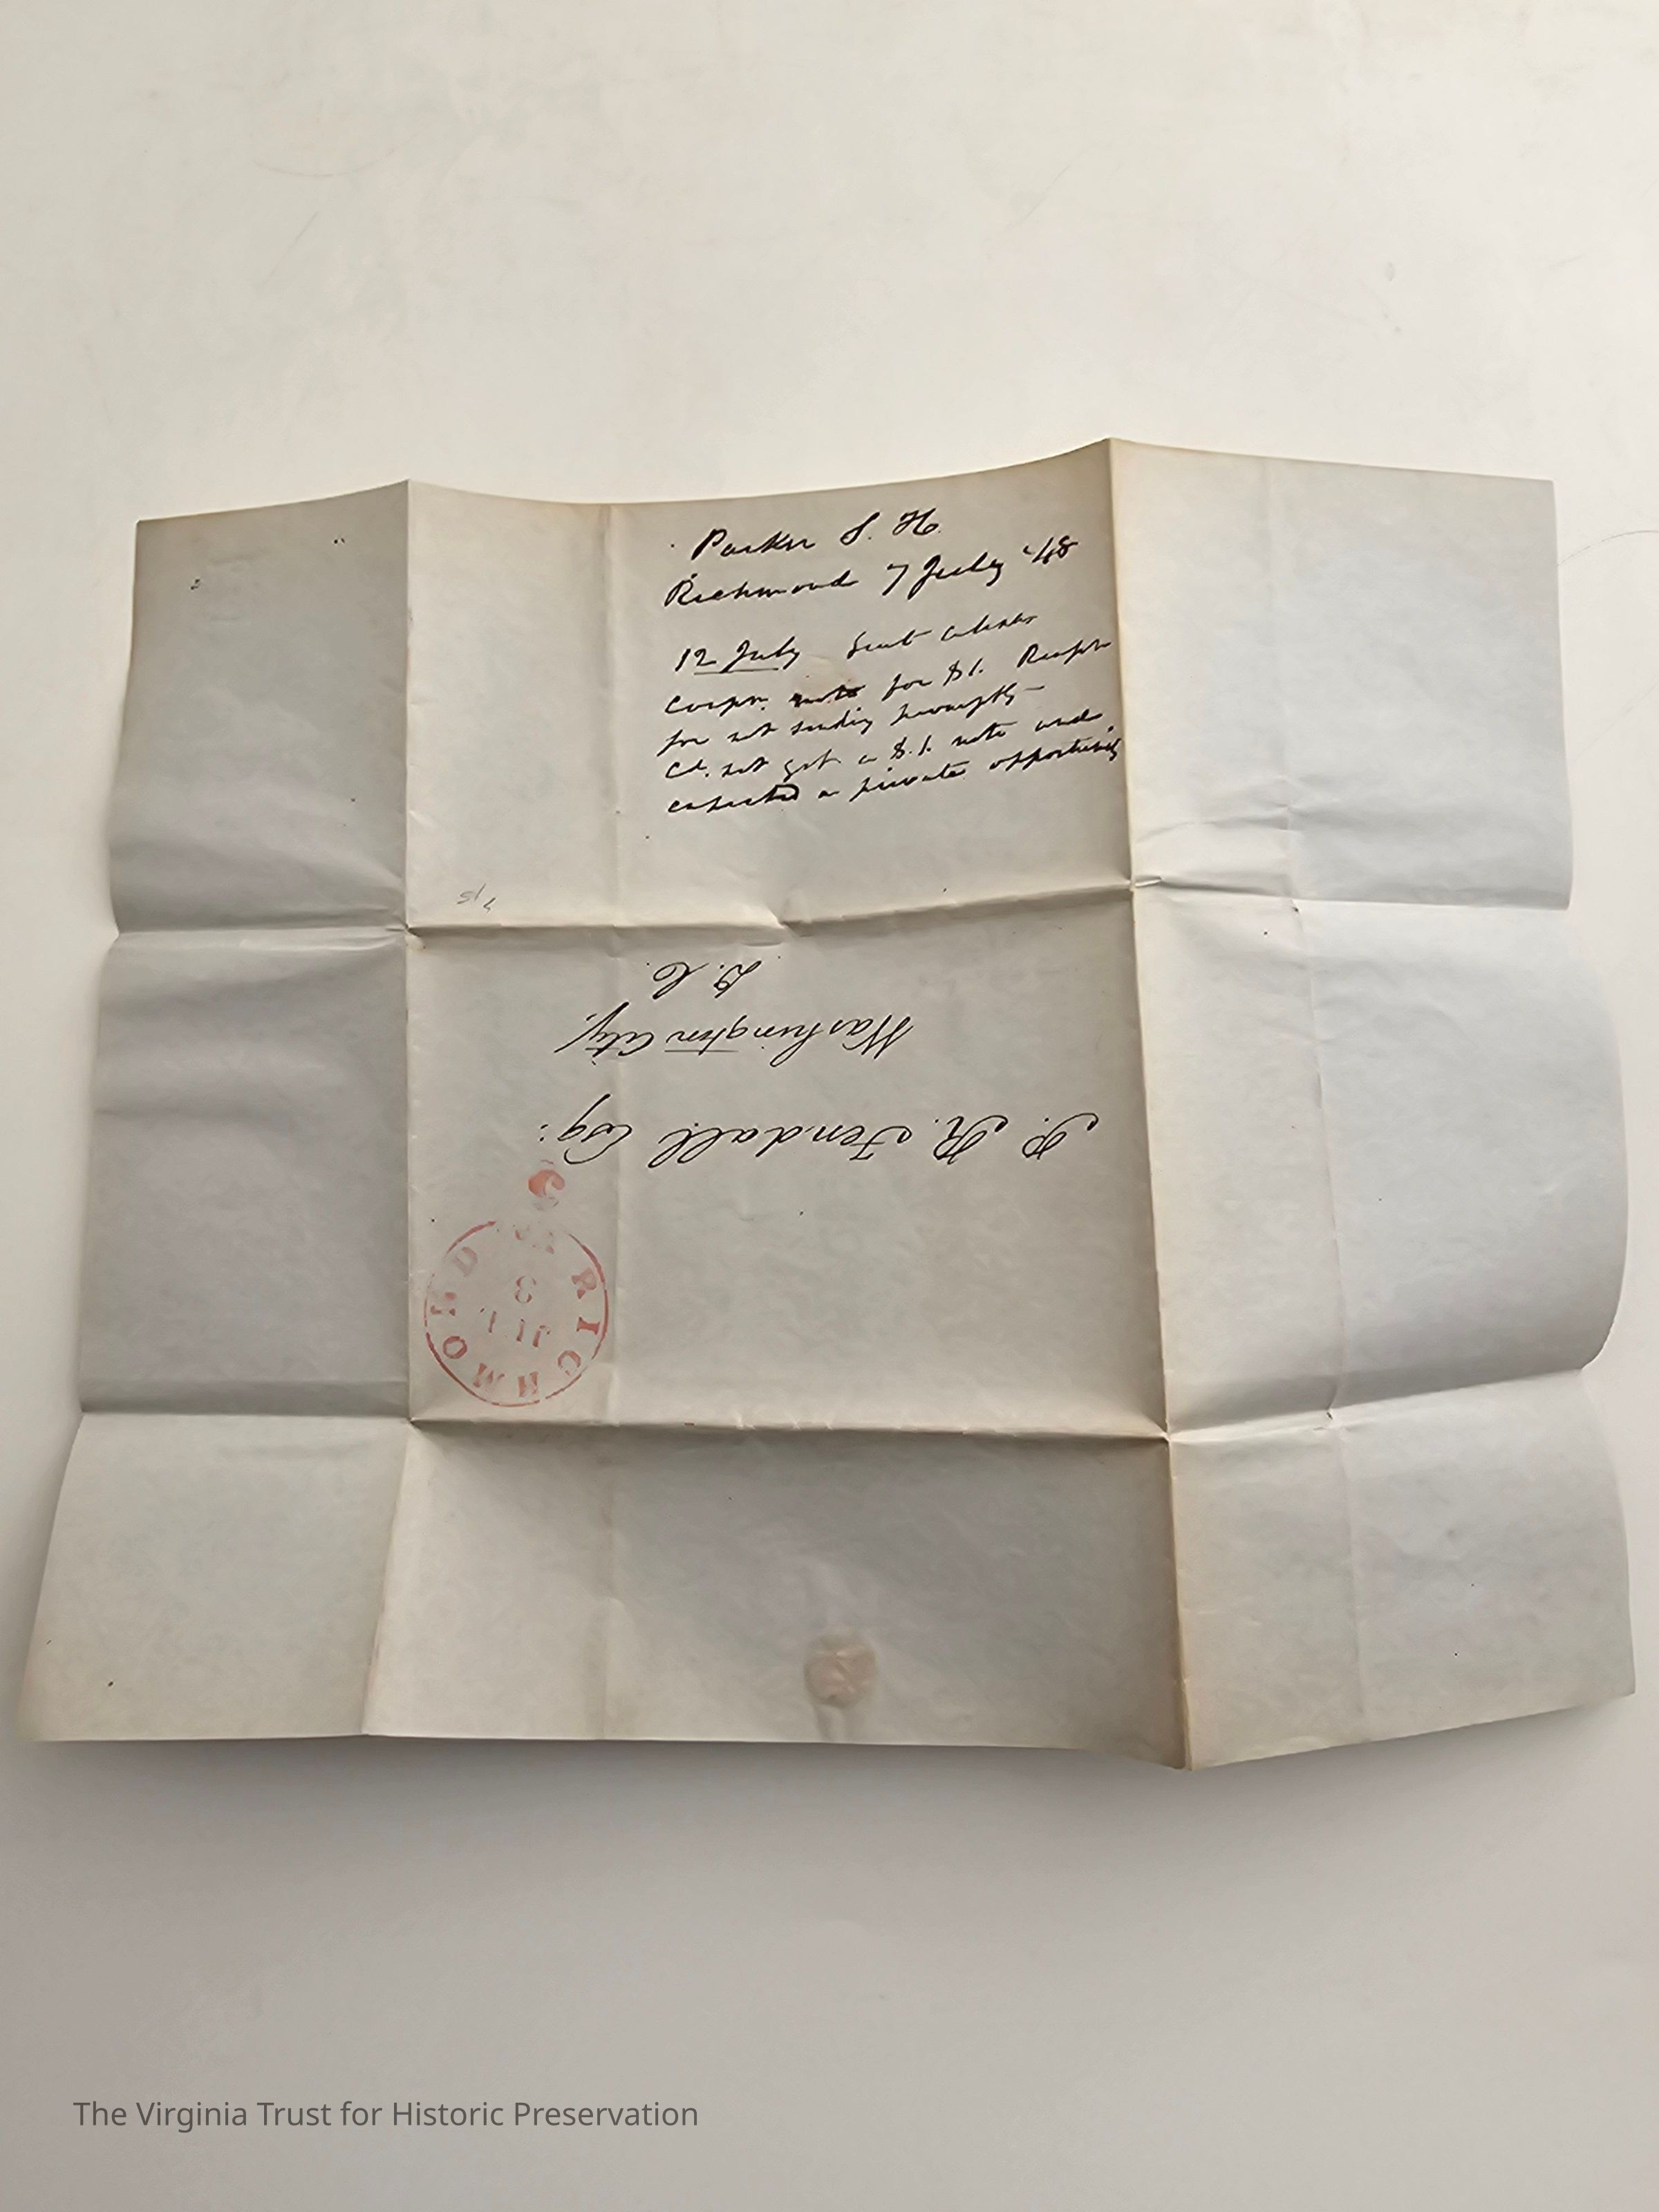 Parker S. H.
Richmond 7 July '48
12 July Sent
Corpn. note for $1.
for not sending promptly—
Cd. not get a $.1. note and
expected a private opportunity
D. C.
Washington City,
P. R. Fendall Esq:
5
RICHMOND VA.
JUL
8
The Virginia Trust for Historic Preservation